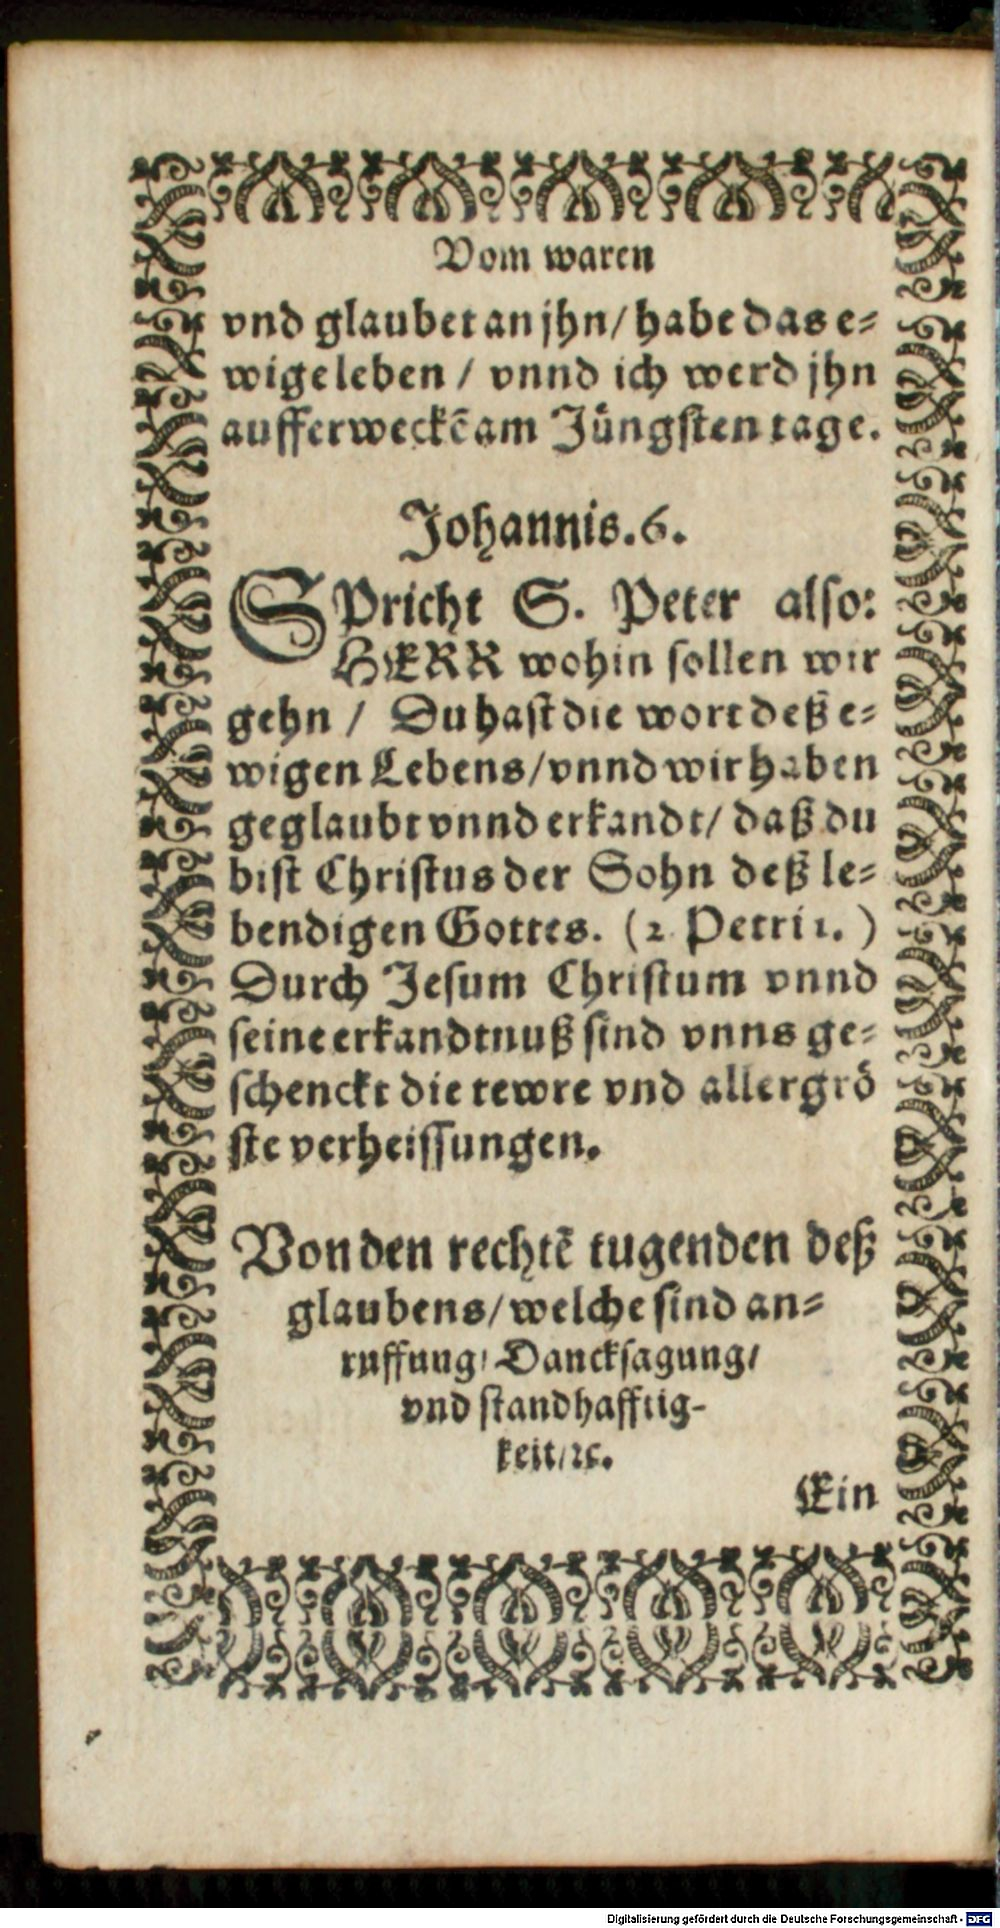 Vom waren
vnd glaubet an jhn/ habe das e⸗
wige leben / vnnd ich werd jhn
aufferweckẽ am Jüngsten tage.
Johannis. 6.
SPricht S. Peter also:
HERR wohin sollen wir
gehn / Du hast die wort deß e⸗
wigen Lebens/ vnnd wir haben
geglaubt vnnd erkandt/ daß du
bist Christus der Sohn deß le⸗
bendigen Gottes. (2 Petri 1. )
Durch Jesum Christum vnnd
seine erkandtnuß sind vnns ge⸗
schenckt die tewre vnd allergrö
ste verheissungen.
Von den rechtẽ tugenden deß
glaubens/ welche sind an⸗
ruffung/ Dancksagung/
vnd standhafftig-
keit/ ꝛc.
Ein
Digitalisierung gefördert durch die Deutsche Forschungsgemeinschaft - DFG